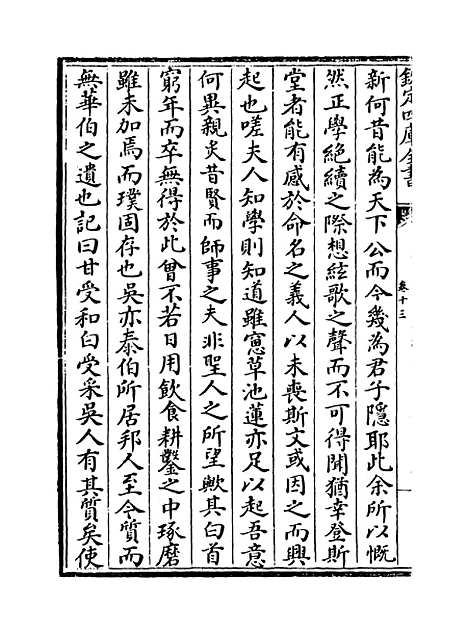 欽定四庫全書
卷十三
新何昔能為天下公而今幾為君子隱耶此余所以慨
然正學絶續之際想絃歌之聲而不可得聞猶幸登斯
堂者能有感於命名之義人以未喪斯文或因之而興
起也嗟夫人知學則知道雖窻草池蓮亦足以起吾意
何異親炙昔賢而師事之夫非聖人之所望歟其白首
窮年而卒無得於此曾不若日用飲食耕鑿之中琢磨
雖未加焉而璞固存也吳亦泰伯所居邦人至今質而
無華伯之遺也記曰甘受和白受采吳人有其質矣使